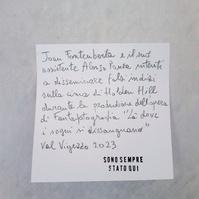 Joan Fontcuberta e il suo
assistente Alonso Panza intenti
a disseminare falsi indizi
sulla cima di Holden Hill
durante la produzione dell'opera
di Fantaptografia "Là dove
i sogni si dissanguano"
Val Vigezzo 2023
SONO SEMPRE
STATO QUI